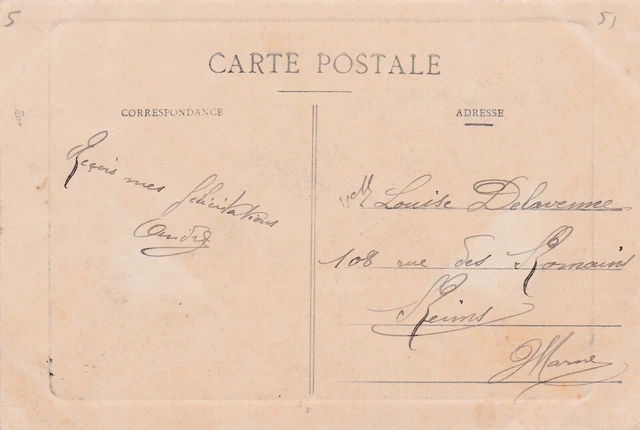 5
51
CARTE POSTALE
CORRESPONDANCE
ADRESSE
Reçois mes félicitations
André
M Louise Delavenne
108 rue des Romains
Reims
Marne